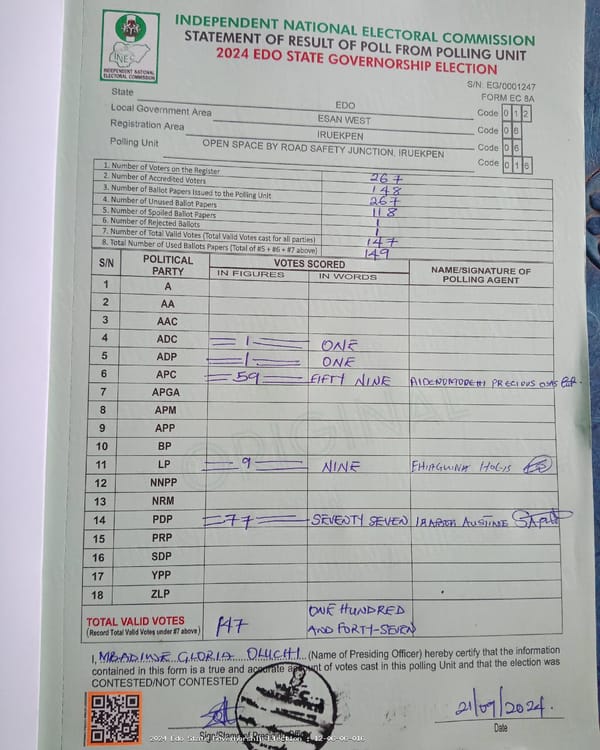 INDEPENDENT NATIONAL ELECTORAL COMMISSION
STATEMENT OF RESULT OF POLL FROM POLLING UNIT
2024 EDO STATE GOVERNORSHIP ELECTION
INEC
INDEPENDENT NATIONAL
ELECTORAL COMMISSION
S/N: EG/0001247
FORM EC 8A
State EDO Code 0 1 2
Local Government Area ESAN WEST Code 0 6
Registration Area IRUEKPEN Code 0 6
Polling Unit OPEN SPACE BY ROAD SAFETY JUNCTION, IRUEKPEN Code 0 1 6
1. Number of Voters on the Register 267
2. Number of Accredited Voters 148
3. Number of Ballot Papers Issued to the Polling Unit 267
4. Number of Unused Ballot Papers 118
5. Number of Spoiled Ballot Papers 1
6. Number of Rejected Ballots 1
7. Number of Total Valid Votes (Total Valid Votes cast for all parties) 147
8. Total Number of Used Ballots Papers (Total of #5 + #6 + #7 above) 149
S/N POLITICAL PARTY VOTES SCORED NAME/SIGNATURE OF POLLING AGENT
IN FIGURES IN WORDS
1 A
2 AA
3 AAC
4 ADC 1 ONE
5 ADP 1 ONE
6 APC 59 FIFTY NINE PRECIOUS
7 APGA
8 APM
9 APP
10 BP
11 LP 9 NINE
12 NNPP
13 NRM
14 PDP 77 SEVENTY SEVEN
15 PRP
16 SDP
17 YPP
18 ZLP
ORIGINAL
TOTAL VALID VOTES 147 ONE HUNDRED
(Record Total Valid Votes under #7 above) AND FORTY-SEVEN
I, MBADIWE GLORIA OLUCHI (Name of Presiding Officer) hereby certify that the information
contained in this form is a true and accurate account of votes cast in this polling Unit and that the election was
CONTESTED/NOT CONTESTED
21/09/2024
Date
2024 Edo State Governorship Election : 12-06-06-016